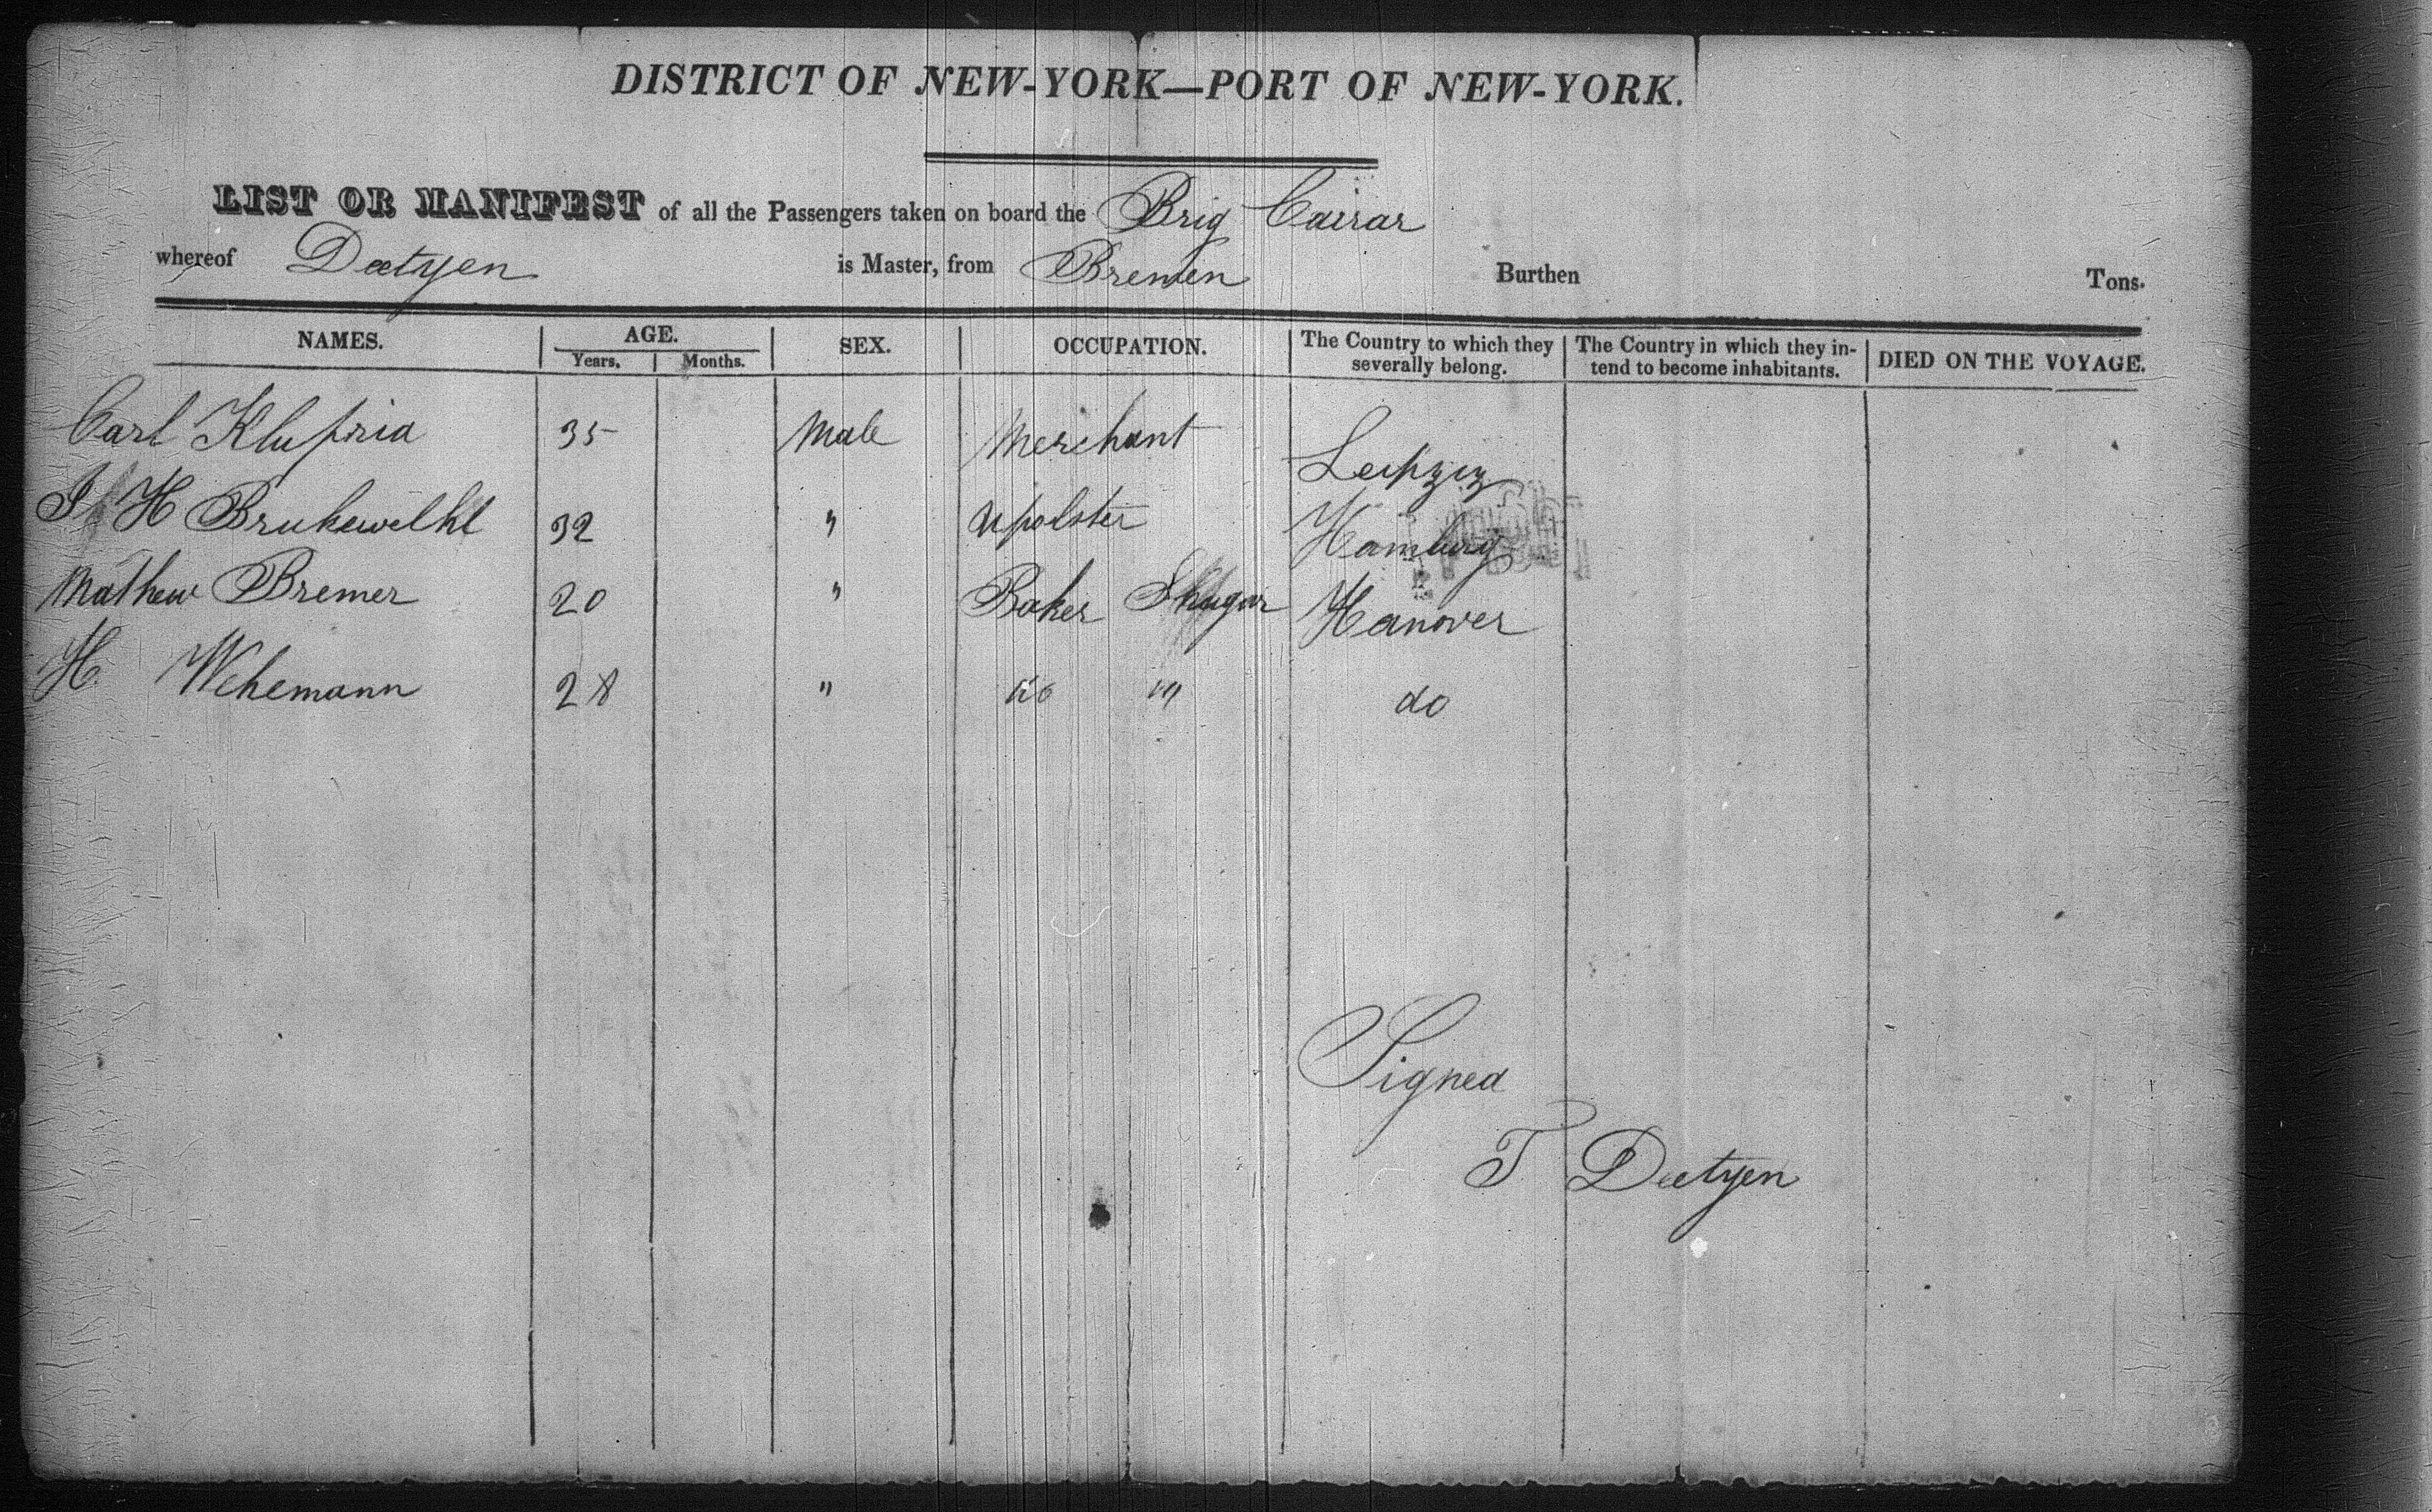 DISTRICT OF NEW-YORK—PORT OF NEW-YORK.
LIST OR MANIFEST of all the Passengers taken on board the Brig Cairar
whereof Deetyen is Master, from Bremen Burthen Tons.
NAMES. AGE. SEX. OCCUPATION. The Country to which they severally belong. The Country in which they in-tend to become inhabitants. DIED ON THE VOYAGE.
Years. Months.
Carl Klupria 35 Male Merchant Leipzig
H Brukewelhl 32 " Upolster Hamburg
Mathew Bremer 20 " Baker Shugar Hanover
H Wehemann 28 " do " do
Signed
T Deetyen